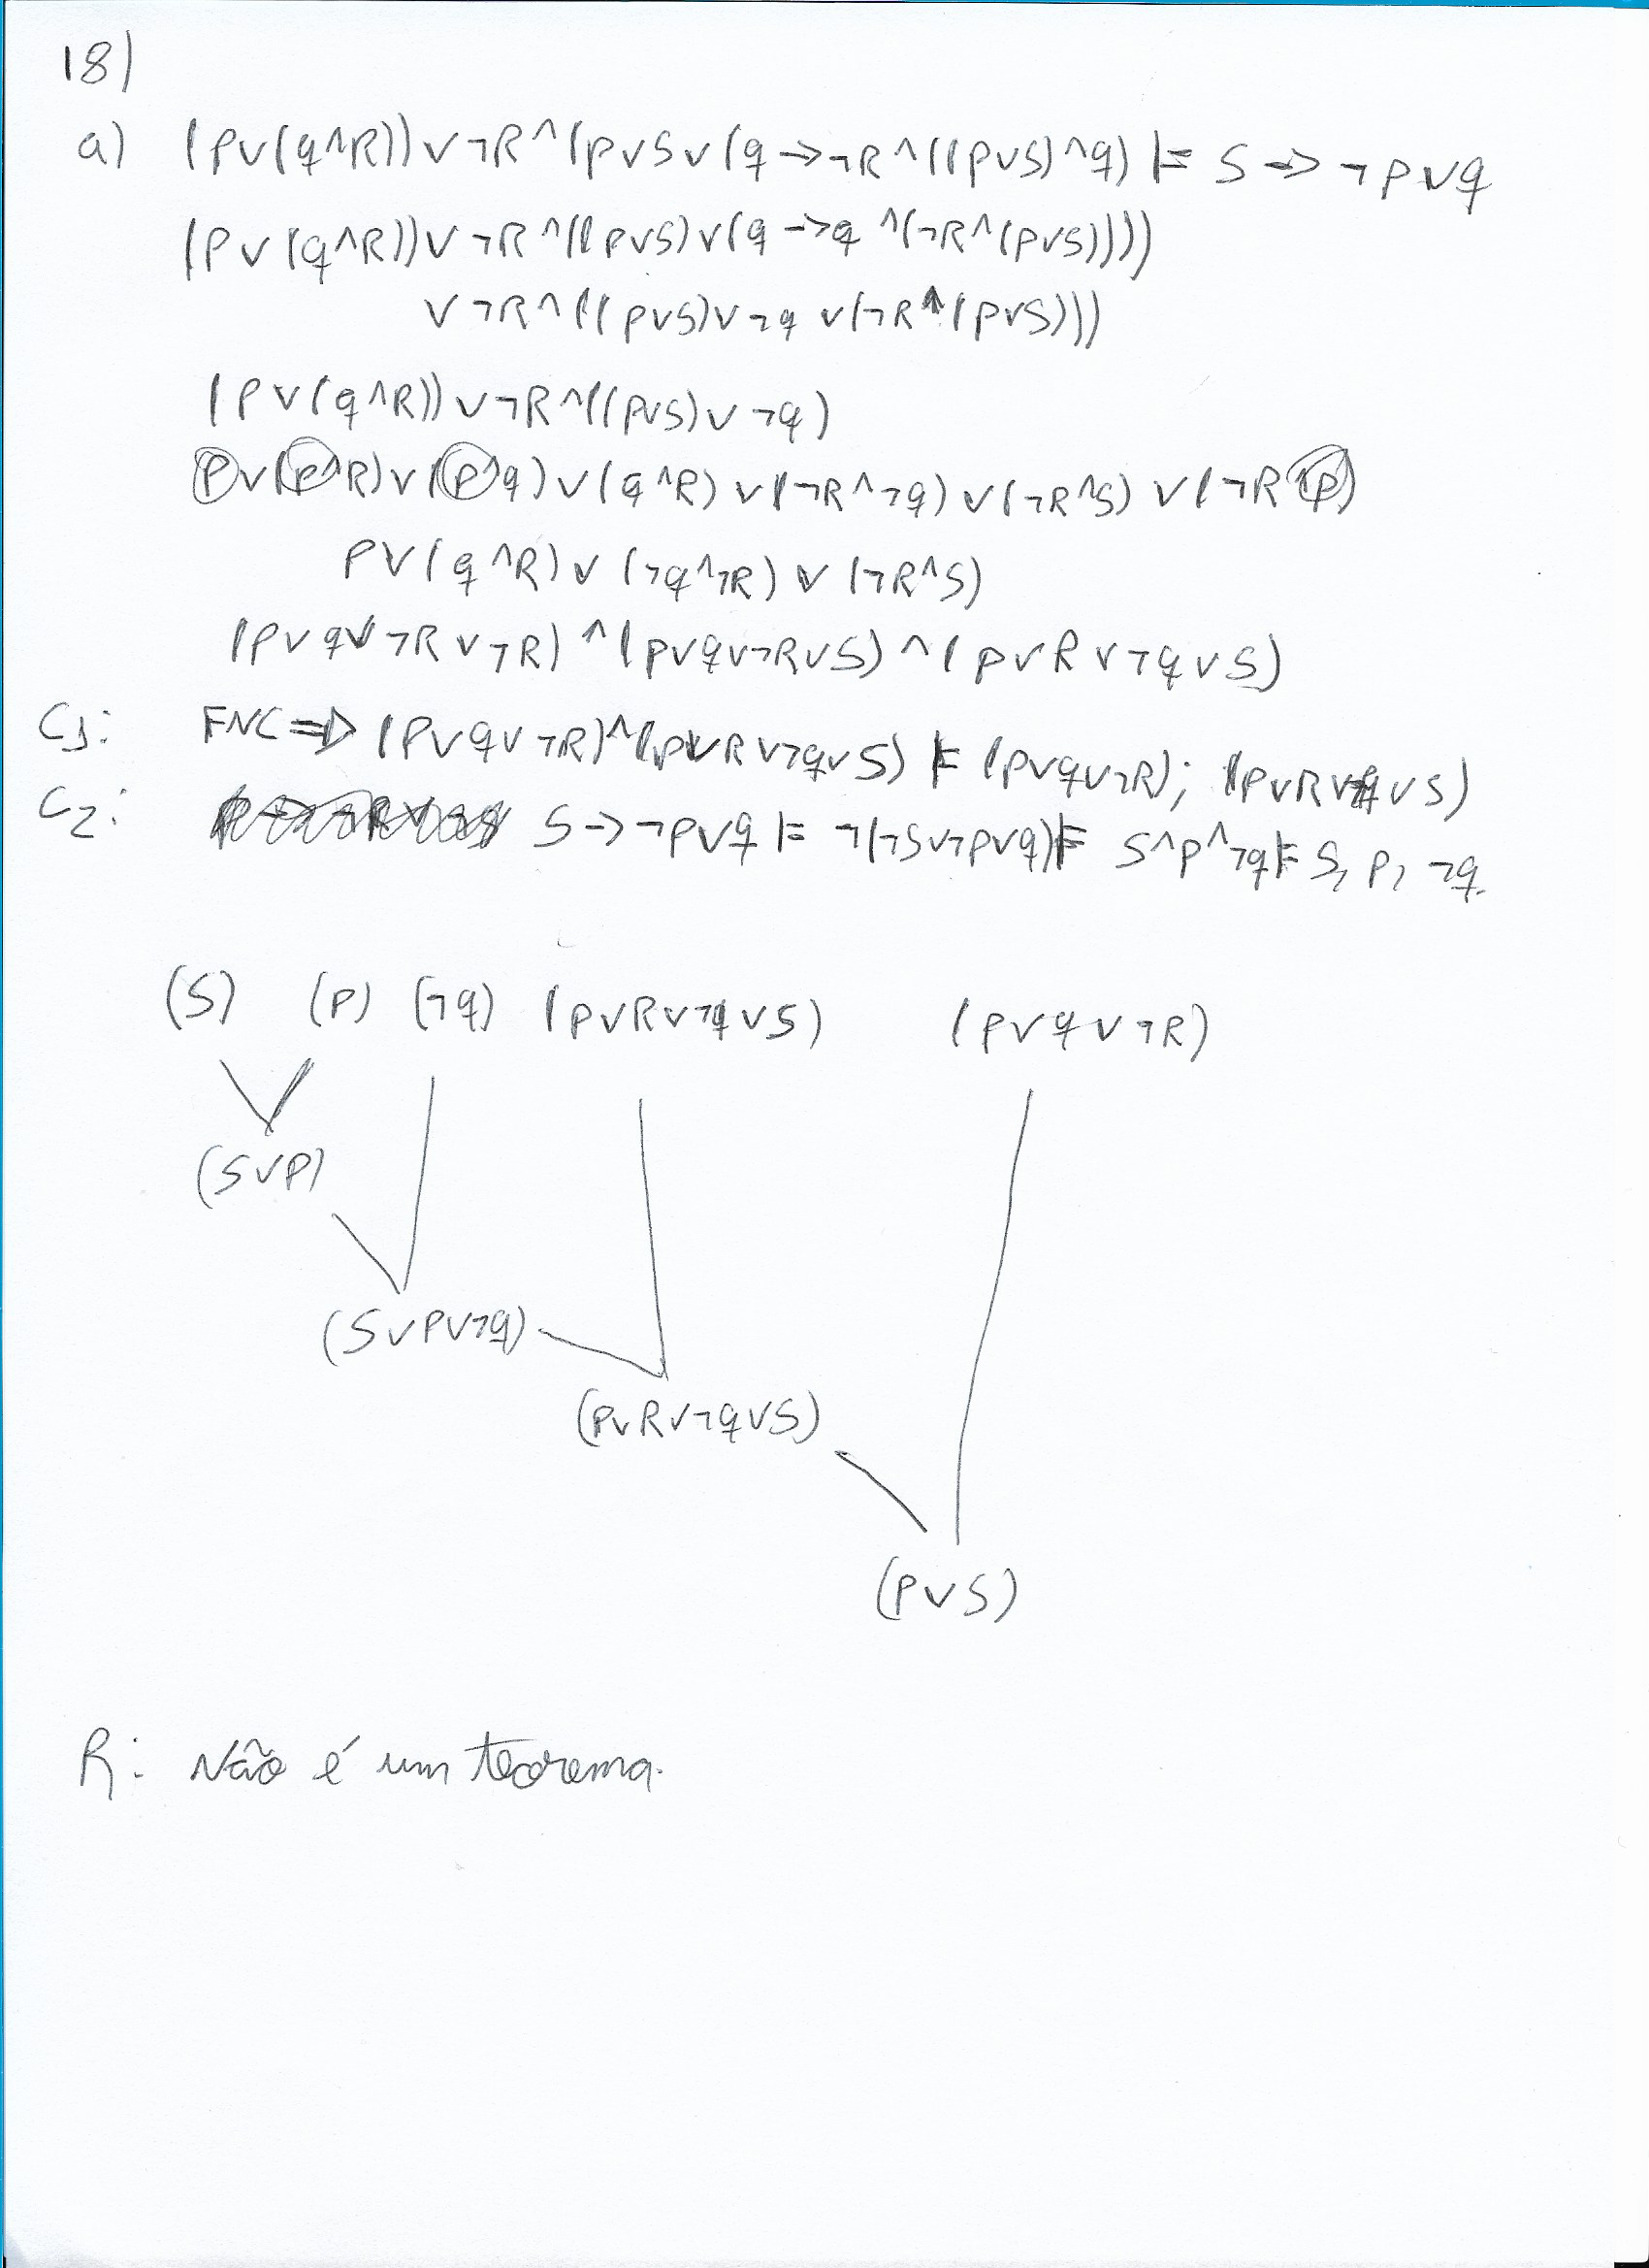 18)
a) (p∨(q∧R))∨¬R∧(p∨S∨(q→¬R∧((p∨S)∧q) ⊨ S→¬p∨q
(p∨(q∧R))∨¬R∧((p∨S)∨(q→q∧(¬R∧(p∨S))))
∨¬R∧((p∨S)∨¬q∨(¬R∧(p∨S)))
(p∨(q∧R))∨¬R∧((p∨S)∨¬q)
p∨(p∧R)∨(p∧q)∨(q∧R)∨(¬R∧¬q)∨(¬R∧S)∨(¬R∧p)
p∨(q∧R)∨(¬q∧¬R)∨(¬R∧S)
(p∨q∨¬R∨¬R)∧(p∨q∨¬R∨S)∧(p∨R∨¬q∨S)
C1: FNC⇒(p∨q∨¬R)∧(p∨R∨¬q∨S) ⊨ (p∨q∨¬R); (p∨R∨¬q∨S)
C2: S→¬p∨q ⊨ ¬(¬S∨¬p∨q) ⊨ S∧p∧¬q ⊨ S, p, ¬q.
(S) (p) (¬q) (p∨R∨¬q∨S) (p∨q∨¬R)
(S∨p)
(S∨p∨¬q)
(p∨R∨¬q∨S)
(p∨S)
R: Não é um teorema.